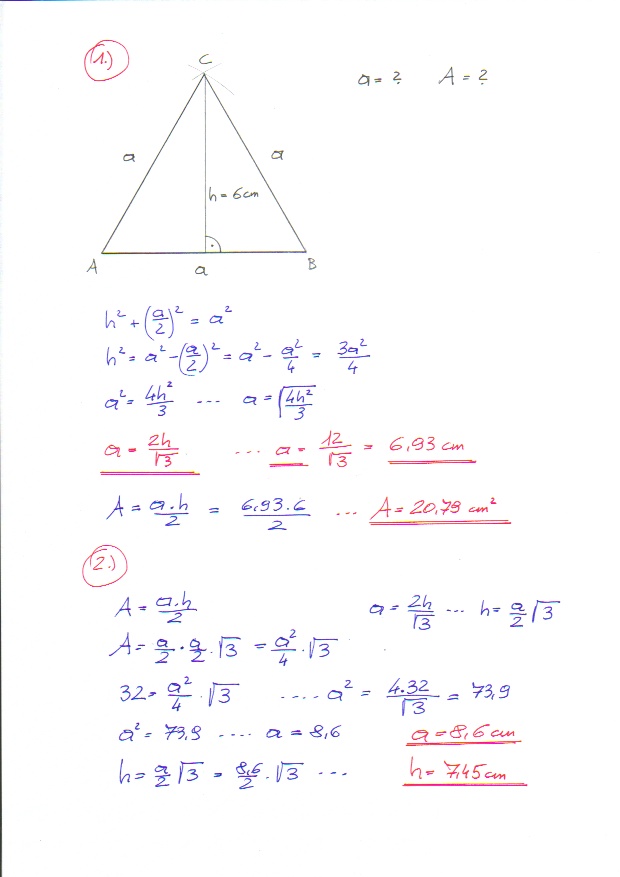 1.)
C
a = ? A = ?
a a
h = 6cm
A a B
h² + (a/2)² = a²
h² = a² - (a/2)² = a² - a²/4 = 3a²/4
a² = 4h²/3 ... a = √(4h²/3)
a = 2h/√3 ... a = 12/√3 = 6,93 cm
A = a.h/2 = 6,93.6/2 ... A = 20,79 cm²
2.)
A = a.h/2 a = 2h/√3 ... h = a/2 √3
A = a/2 · a/2 . √3 = a²/4 . √3
32 = a²/4 . √3 .... a² = 4.32/√3 = 73,9
a² = 73,9 .... a = 8,6 a = 8,6 cm
h = a/2 √3 = 8,6/2 . √3 ... h = 7,45 cm